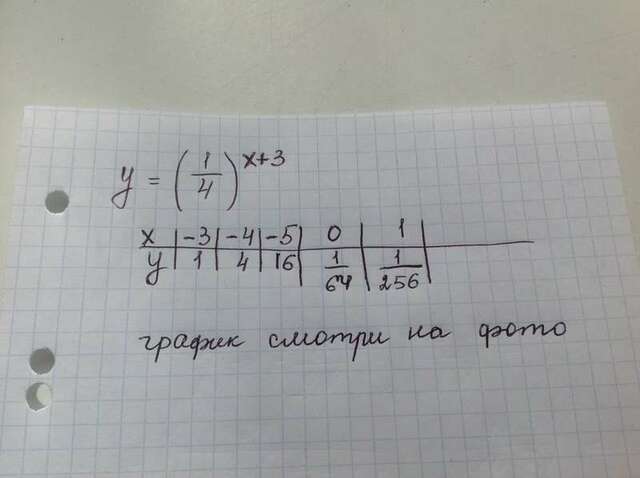 y = (1/4)^(x+3)
x | -3 | -4 | -5 | 0 | 1 |
y | 1 | 4 | 16 | 1/64 | 1/256 |
график смотри на фото